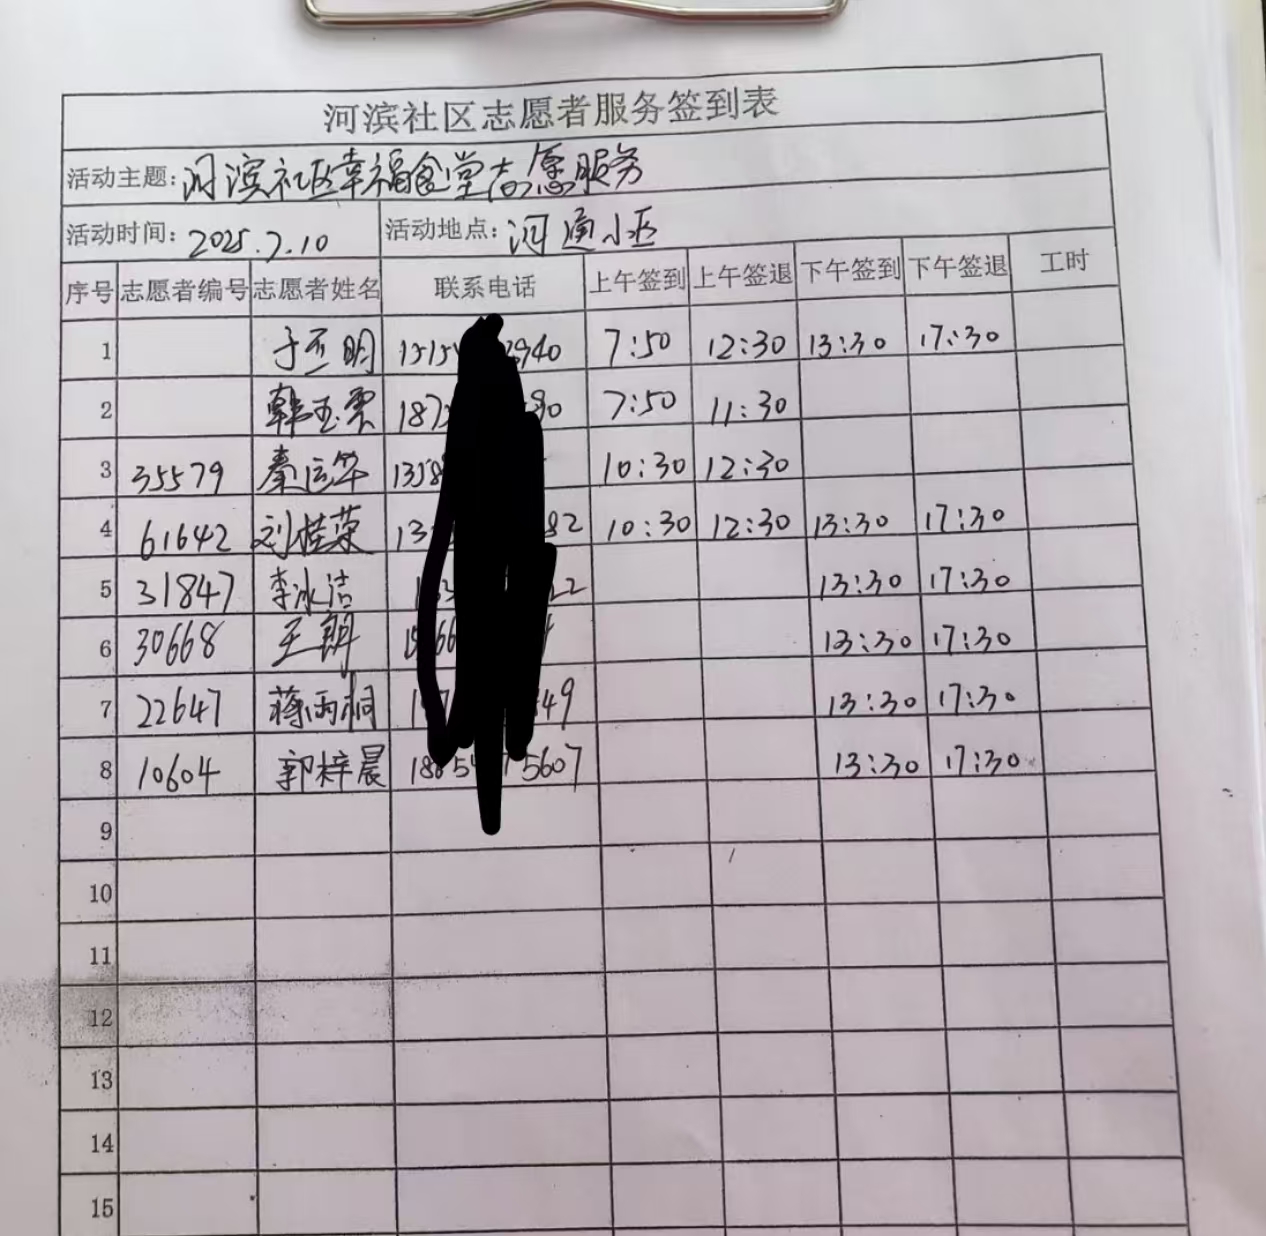 河滨社区志愿者服务签到表
活动主题: 河滨社区幸福食堂志愿服务
活动时间: 2025.7.10 活动地点: 河通小区
序号 志愿者编号 志愿者姓名 联系电话 上午签到 上午签退 下午签到 下午签退 工时
1 于亚明 940 7:50 12:30 13:30 17:30
2 韩玉云 187 90 7:50 11:30
3 35579 秦运华 1358 10:30 12:30
4 61642 刘桂荣 13 82 10:30 12:30 13:30 17:30
5 31847 李冰洁 13:30 17:30
6 30668 王朗 13:30 17:30
7 22647 蒋雨桐 49 13:30 17:30
8 10604 郭梓晨 5607 13:30 17:30
9
10
11
12
13
14
15